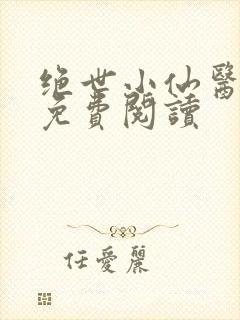 绝世小仙醫
免費閱讀
任愛麗